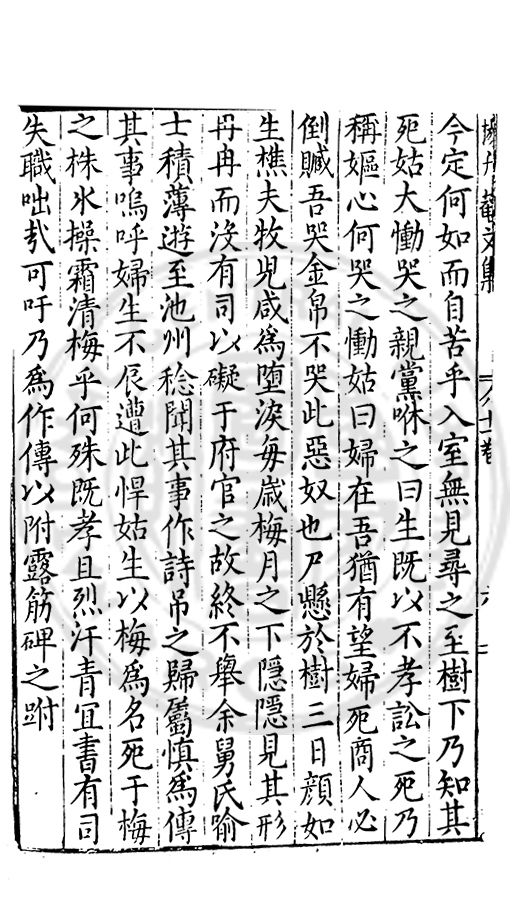 升菴文集 十一卷 六
今定何如而自苦乎入室無見尋之至樹下乃知其
死姑大慟哭之親黨咻之曰生既以不孝訟之死乃
稱嫗心何哭之慟姑曰婦在吾猶有望婦死商人必
倒贓吾哭金帛不哭此惡奴也尸懸於樹三日顔如
生樵夫牧児咸爲墮淚毎歲梅月之下隠隠見其形
冉冉而没有司以礙于府官之故終不舉余舅氏喻
士積薄遊至池州稔聞其事作詩吊之歸屬慎爲傳
其事嗚呼婦生不辰遭此悍姑生以梅爲名死于梅
之株氷操霜清梅乎何殊既孝且烈汗青宜書有司
失職咄哉可吁乃爲作傳以附露筋碑之跗